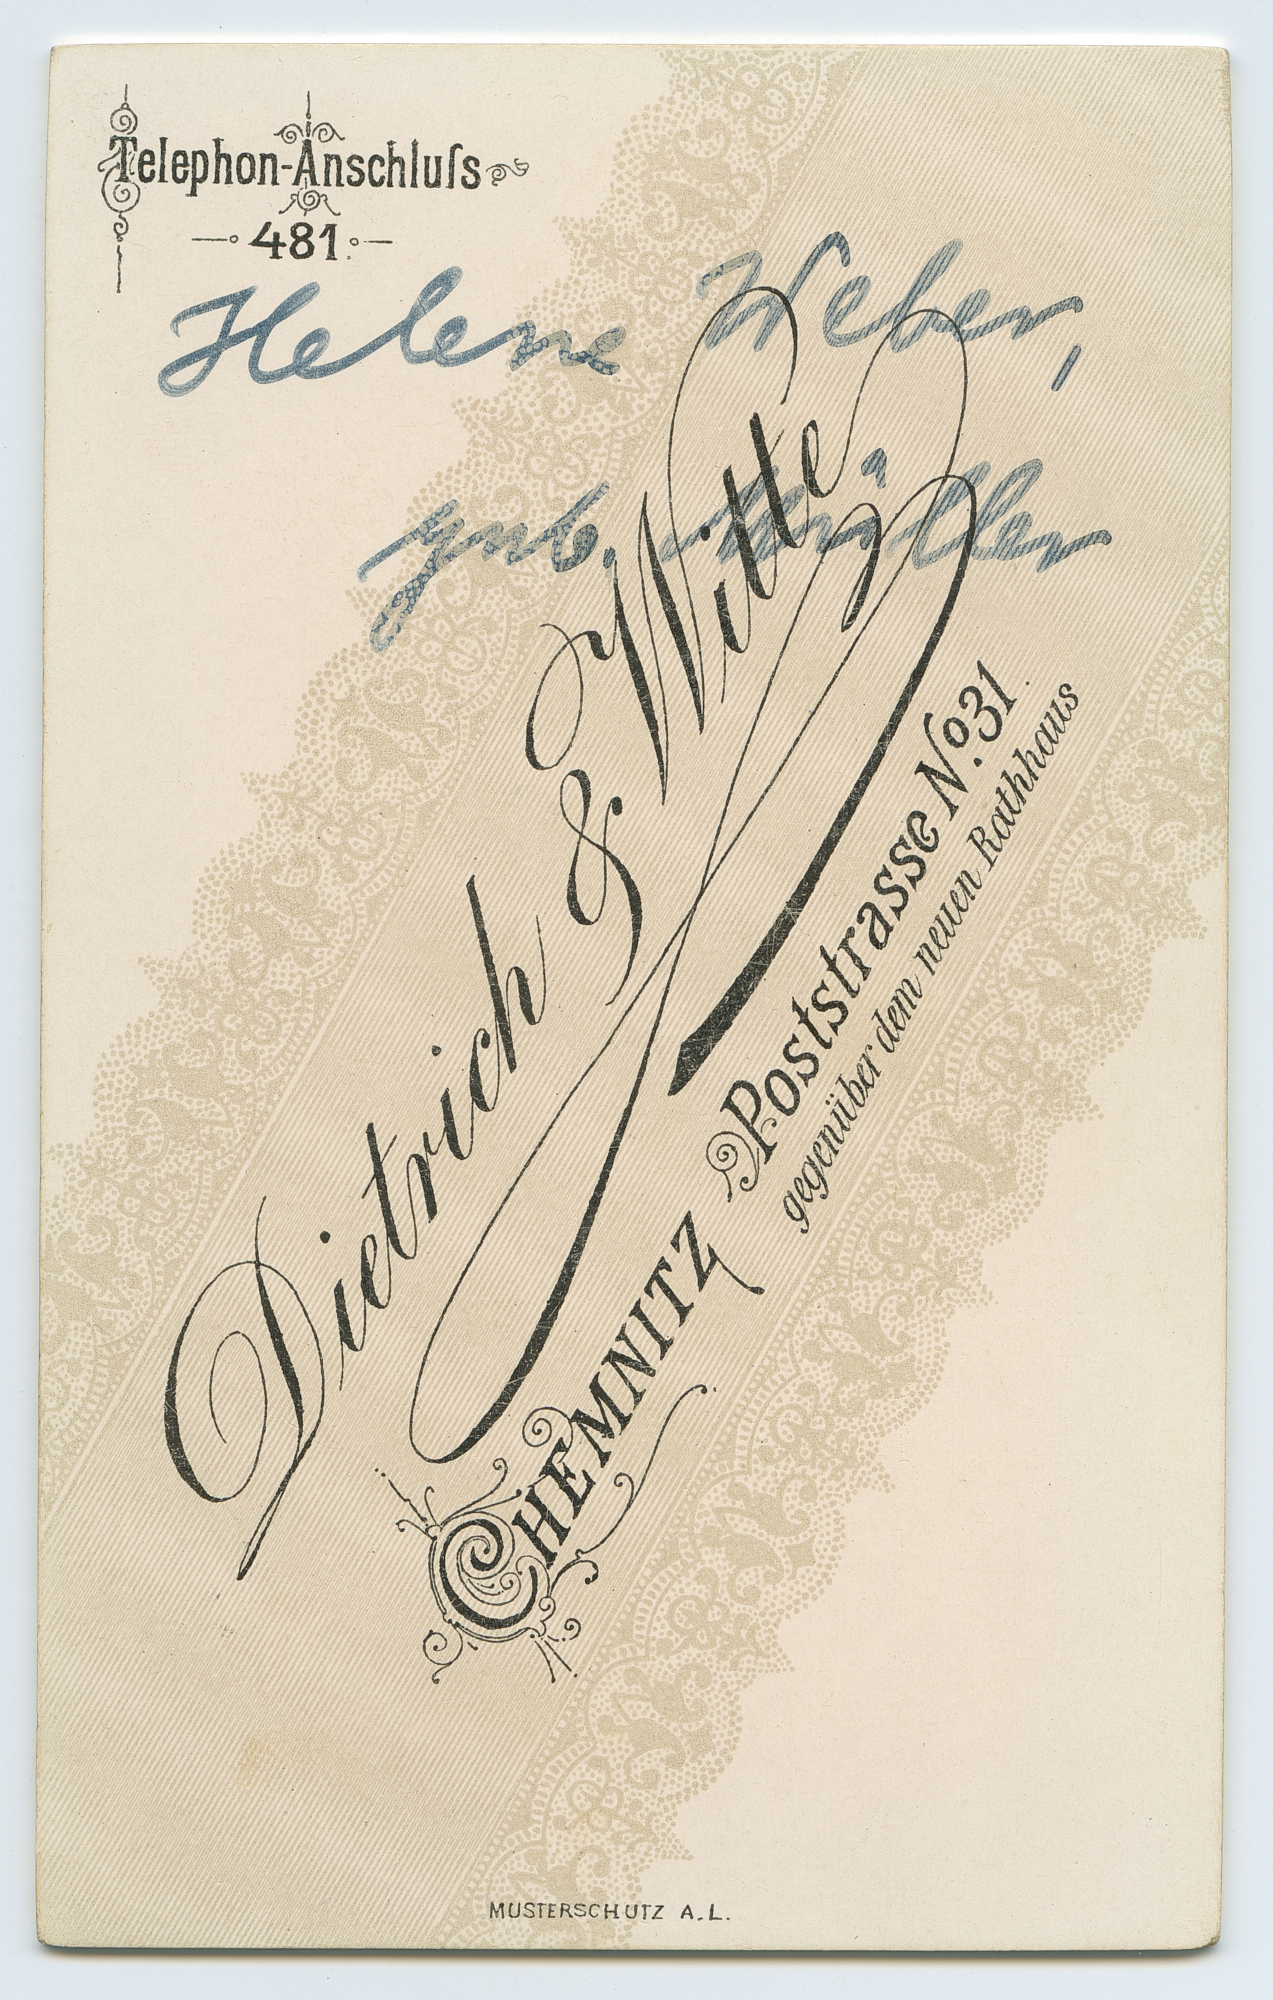 Telephon-Anschluſs
481.
Helene Weber,
geb. Müller
Dietrich & Witte
CHEMNITZ
Poststrasse No. 31.
gegenüber dem neuen Rathhaus
MUSTERSCHUTZ A. L.